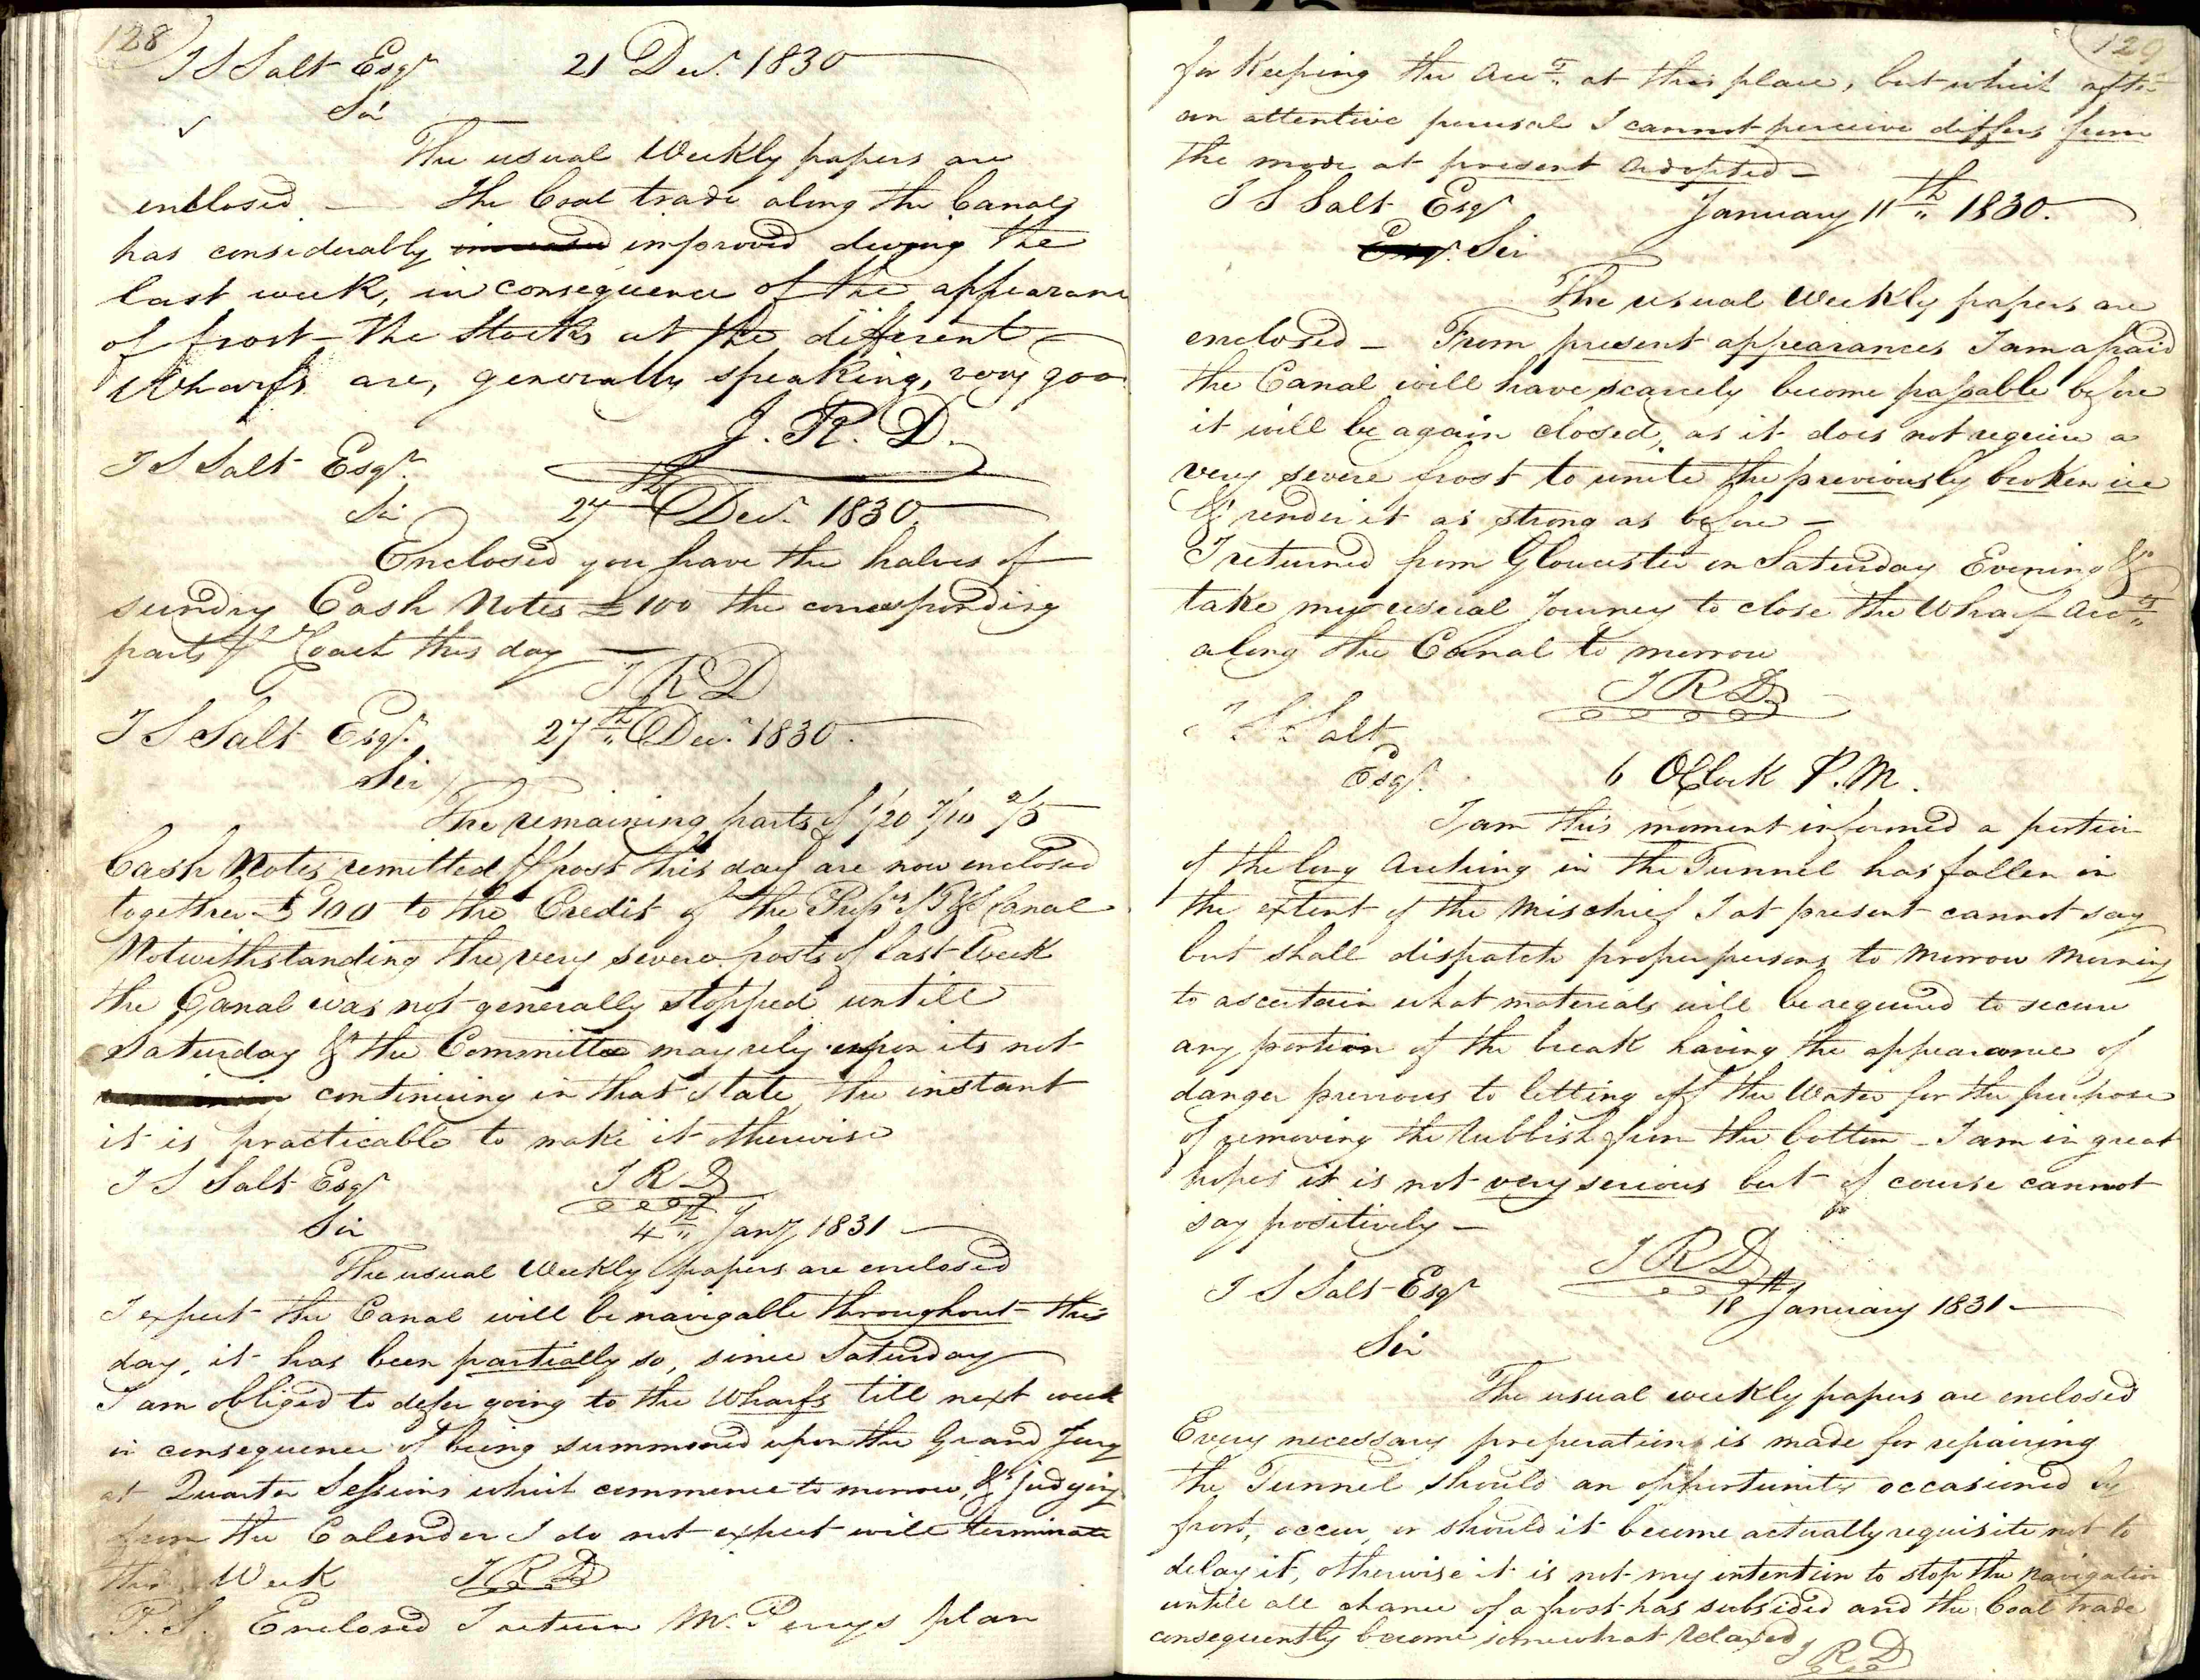 128
I S Salt Esqr 21 Decr. 1830
Sir
The usual Weekly papers are
enclosed — The Coal trade along the Canal
has considerably increased improved during the
last week, in consequence of the appearance
of frost – The Stocks at the different
Wharfs are, generally speaking, very good
J. R. D.
I S Salt Esqr.
Sir 27th Decr. 1830
Enclosed you have the halves of
sundry Cash Notes £100 the corresponding
parts Coach this day —
I R D
I S Salt Esqr. 27th Decr. 1830.
Sir
The remaining parts of 1/20 7/10 2/5
Cash Notes remitted post this day are now enclosed
together £100 to the Credit of the Canal
Notwithstanding the very severe frosts of last Week
the Canal was not generally stopped untill
Saturday & the Committee may rely upon its not
continuing in that State, the instant
it is practicable to make it otherwise
I S Salt Esqr I R D
Sir 4th Jany 1831 —
The usual Weekly papers are enclosed
I expect the Canal will be navigable throughout this
day, it has been partially so, since Saturday
I am obliged to defer going to the Wharfs till next week
in consequence of being summoned upon the Grand Jury
at Quarter Sessions which commence to morrow, & judging
from the Calender I do not expect will terminate
this Week I R D
P.S. Enclosed I return Mr. Perrys plan
129
for Keeping the Acct. at this place, but which after
an attentive perusal I cannot perceive differs from
the mode at present adopted –
I S Salt Esqr January 11th 1830.
Esqr. Sir
The usual Weekly papers are
enclosed – From present appearances I am afraid
the Canal will have scarcely become passable before
it will be again closed, as it does not require a
very severe frost to unite the previously broken ice
& render it as strong as before –
I returned from Gloucester on Saturday Evening &
take my usual Journey to close the Wharf Accts
along the Canal to morrow
I R D
I S Salt
Esqr. 6 OClock P.M.
I am this moment informed a portion
of the long Arching in the Tunnel has fallen in
the extent of the Mischief I at present cannot say
but shall dispatch proper persons to Morrow Morning
to ascertain what materials will be required to secure
any portion of the break having the appearance of
danger previous to letting off the Water for the purpose
of removing the Rubbish from the bottom – I am in great
hopes it is not very serious but of course cannot
say positively –
I R D
I S Salt Esqr 18th January 1831 –
Sir
The usual weekly papers are enclosed
Every necessary preperation is made for repairing
the Tunnel should an opportunity occasioned by
frost, occur, or should it become actually requisite not to
delay it, otherwise it is not my intention to stop the navigation
untill all chance of a frost has subsided and the Coal trade
consequently become somewhat relaxed I R D